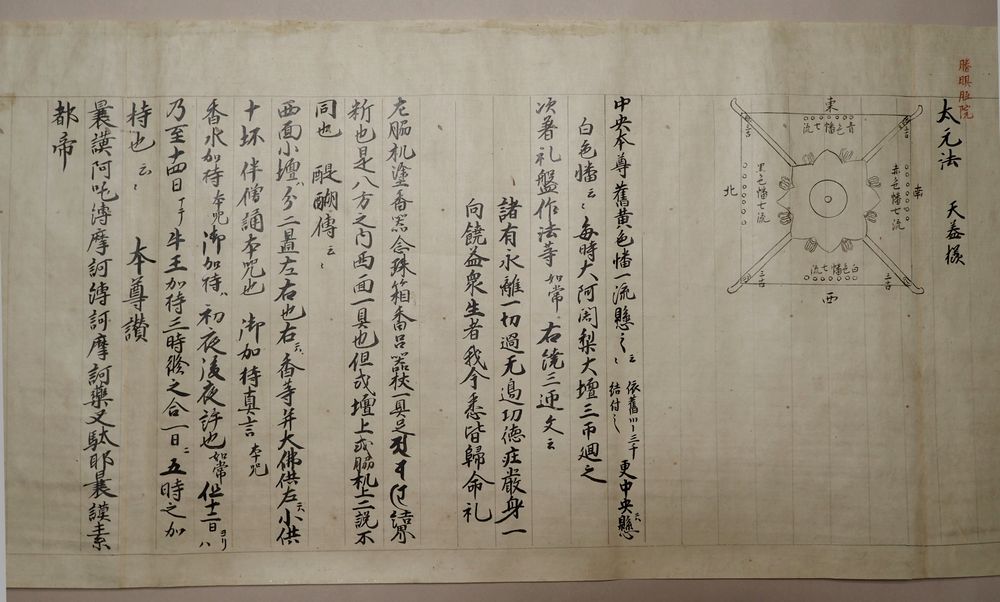 勝賢院
太元法 天養様
東
青色幡七流
南
赤色幡七流
白色幡七流
西
黒色幡七流
北
三古
三古
中央本尊舊黄色幡一流懸之 云々 依舊 三千結付之 更中央懸
白色幡 云々 毎時大阿闍梨大壇三帀廻之
次着礼盤作法等 如常 右繞三迊文 云
諸有永離一切過无邉功徳荘厳身一
向饒益衆生者我今悉皆歸命礼
左脇机塗香器念珠箱番呂器杖一具足 結界
新也是八方之内西面一具也但或壇上或脇机上二説不
同也 醍醐傳 云々
西面小壇ハ分二畳左右也右ニハ香等并大佛供左ニハ小供
十坏 伴僧誦本咒也 御加持真言 本咒
香水加持 本咒 御加持ハ初夜後夜許也 如常 但十一日ヨリハ
乃至十四日 牛王加持三時 之合一日ニ五時之加
持也 云々 本尊讃
曩謨阿吒縛摩訶縛訶摩訶藥叉駄耶曩謨素
都帝